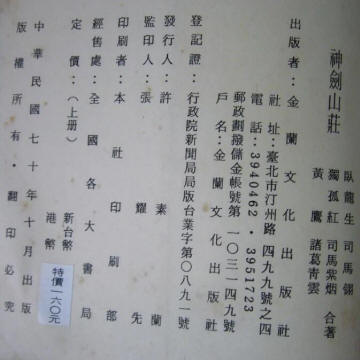 神劍山莊
臥龍生 司馬翎
獨孤紅 司馬紫烟 合著
黃鷹 諸葛青雲
出版者：金蘭文化出版社
社址：臺北市汀州路四九九號之四
電話：3940462・3951723
郵政劃撥儲金帳號第一〇三一四九號
戶名：金蘭文化出版社
登記證：行政院新聞局局版台業字第〇八九一號
發行人：許素蘭
監印人：張耀先
印刷者：本社印刷部
經售處：全國各大書局
定價：（上册）
新台幣
港幣
特價一六〇元
中華民國七十年十月出版
版權所有・翻印必究